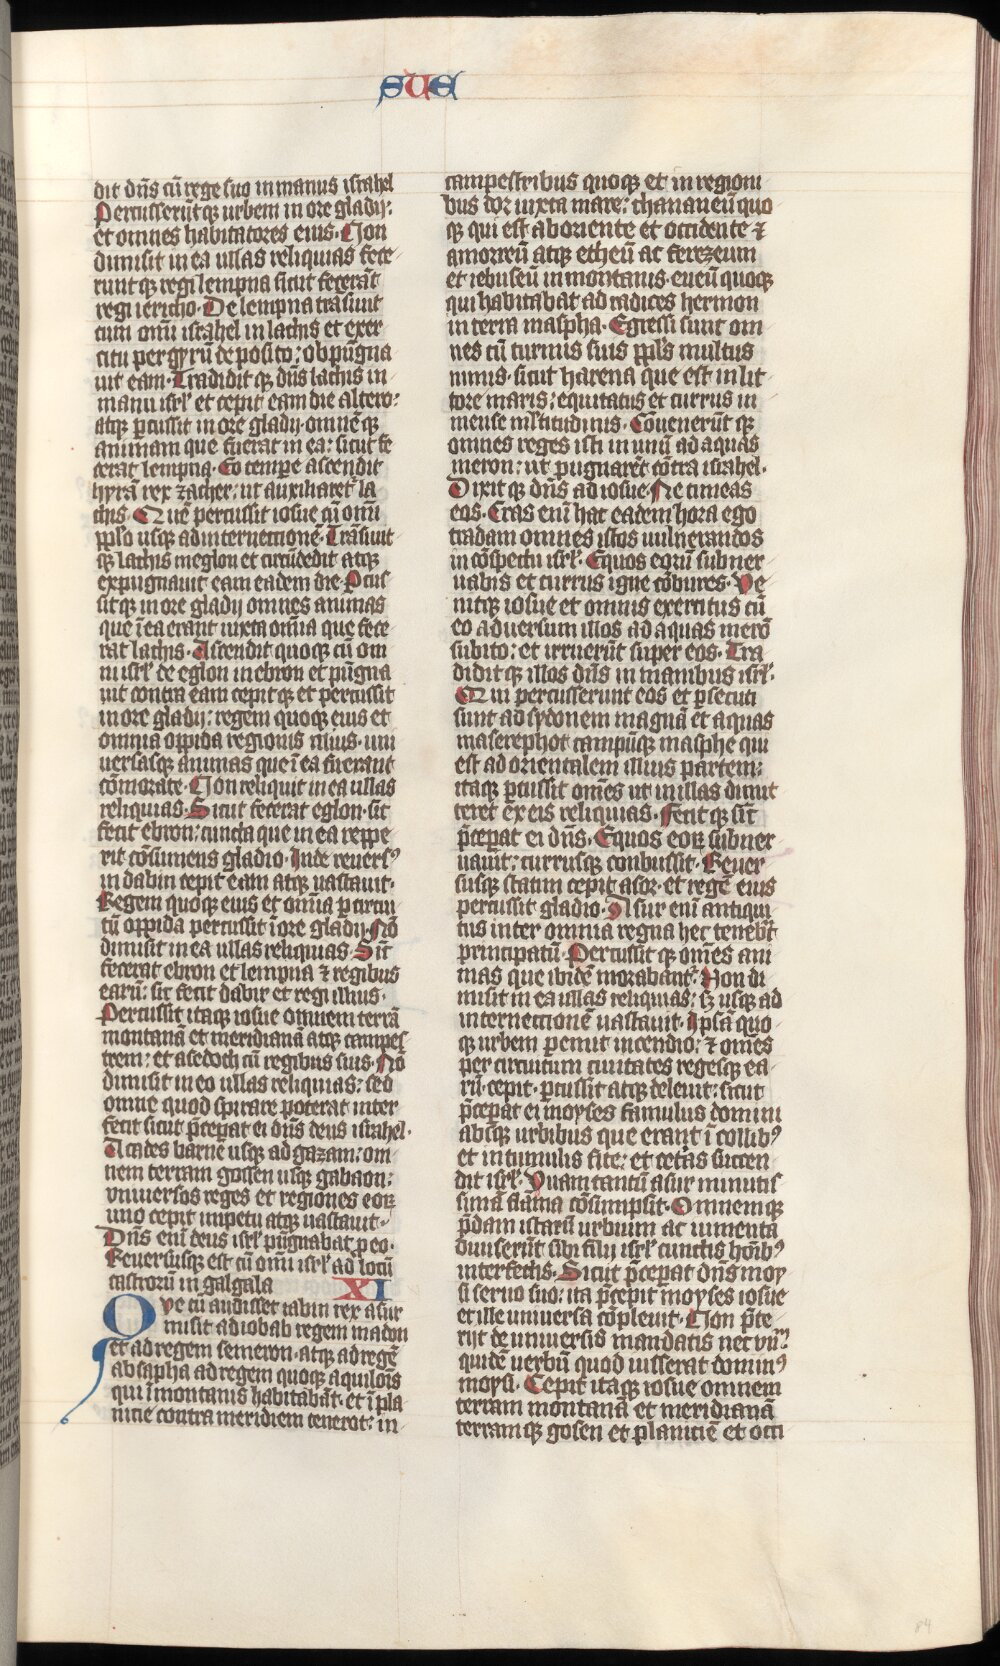 sue
dit dn̄s cū rege suo in manus israhel
Percusserūtqꝫ urbem in ore gladij:
et omnes habitatores eius. Non
dimisit in ea ullas reliquias fece
runtqꝫ regi lempna sicut fecerāt
regi iericho. De lempna trāsiuit
cum omī israhel in lachis et exer
citu per gyrū deposito: obpūgna
uit eam. Tradiditqꝫ dn̄s lachis in
manu isrl̄ et cepit eam die altero:
atqꝫ ꝑcussit in ore gladij. omnēqꝫ
animam que fuerat in ea: sicut fe
cerat lempna. Eo tempe ascendit
hyrā rex zacher: ut auxiliaret̄ la
chis. Quē percussit iosue cū omī
ppl̄o usqꝫ ad internectionē. Trāsiuit
qꝫ lachis in eglon et circūdedit atqꝫ
expugnauit eam eadem die. Pcus
sitqꝫ in ore gladij omnes animas
que ī ea erant iuxta om̄ia que fece
rat lachis. Ascendit quoqꝫ cū om
ni isrl̄ de eglon in ebron et pūgna
uit contra eam cepitqꝫ et percussit
in ore gladij: regem quoqꝫ eius et
omnia oppida regionis illius. uni
uersasqꝫ animas que ī ea fuerant
cōmorate. Non reliquit in ea ullas
reliquias. Sicut fecerat eglon. sic
fecit ebron: cuncta que in ea reppe
rit cōsumens gladio. Inde reuersꝰ
in dabin cepit eam atqꝫ uastauit.
Regem quoqꝫ eius et om̄ia ꝑ circui
tū oppida percussit ī ore gladij. Nō
dimisit in ea ullas reliquias. Sic̄
fecerat ebron et lempna ⁊ regibus
earū: sic fecit dabir et regi illius.
Percussit itaqꝫ iosue omnem terrā
montanā et meridianā atqꝫ campes
trem: et asedoch cū regibus suis. Nō
dimisit in eo ullas reliquias: sed
omne quod spirare poterat inter
fecit sicut p̄ceꝑat ei dn̄s deus israhel.
A cades barne usqꝫ ad gazam: om
nem terram gossen usqꝫ gabaon:
vniuersos reges et regiones eoꝝ
uno cepit impetu atqꝫ uastauit.
Dn̄s enī deus isrl̄ pūgnabat ꝑ eo.
Reuersusqꝫ est cū omī isrl̄ ad locū
castrorū in galgala XI
Que cū audisset iabin rex asur
misit ad iobab regem madon
et ad regem semeron. atqꝫ ad regē
absapha ad regem quoqꝫ aquilōis
qui ī montanis habitabāt. et ī pla
nicie contra meridiem cenerot: in
campestribus quoqꝫ et in regioni
bus dor iuxta mare: chananeū quo
qꝫ qui est ab oriente et occidente ⁊
amorreū atqꝫ etheū ac ferezeum
et iebuseū in montanis. eueū quoqꝫ
qui habitabat ad radices hermon
in terra maspha. Egressi sunt om
nes cū turmis suis ppl̄s multus
nimis. sicut harena que est in lit
tore maris: equitatus et currus in
mense ml̄titudinis. Cōuenerūtqꝫ
omnes reges isti in unū ad aquas
meron: ut pugnarēt cōtra israhel.
Dixitqꝫ dn̄s ad iosue. Ne timeas
eos. Cras enī hac eadem hora ego
tradam omnes istos uulnerandos
in cōspectu isrl̄. Equos eorū subner
uabis et currus igne cōbures. Ve
nitqꝫ iosue et omnis exercitus cū
eo aduersum illos ad aquas merō
subito: et irruerūt super eos. Tra
diditqꝫ illos dn̄s in manibus isrl̄.
Qui percusserunt eos et ꝑsecuti
sunt ad sydonem magnā et aquas
maserephot campūqꝫ masphe qui
est ad orientalem illius partem:
itaqꝫ ꝑcussit om̄es ut nullas dimit
teret ex eis reliquias. Fecitqꝫ sic̄
p̄ceꝑat ei dn̄s. Equos eoꝝ subner
uauit: currusqꝫ conbussit. Reuer
susqꝫ statim cepit asor. et regē eius
percussit gladio. Asur enī antiqui
tus inter omnia regna hec teneb̄t
principatū. Percussitqꝫ om̄es ani
mas que ibidē morabant̄. Non di
misit in ea ullas reliquias: sꝫ usqꝫ ad
internectionē uastauit. Ipsā quo
qꝫ urbem ꝑemit incendio: ⁊ om̄es
per circuitum ciuitates regesqꝫ ea
rū. cepit. ꝑcussit atqꝫ deleuit: sicut
p̄ceꝑat ei moyses famulus domini
absqꝫ urbibus que erant ī collibꝰ
et in tumulis site: et cet̄as succen
dit isrl̄. Vnam tantū asur munitis
simā flāma cōsumpsit. Omnemqꝫ
p̄dam istarū urbium ac iumenta
diuiserūt sibi filij isrl̄ cunctis hoībꝰ
interfectis. Sicut p̄ceꝑat dn̄s moy
si seruo suo: ita p̄cepit moyses iosue
et ille uniuersa cōpleuit. Non p̄te
rijt de uniuersis mandatis nec vnū
quidē uerbū quod iusserat dominꝰ
moysi. Cepit itaqꝫ iosue omnem
terram montanā et meridianā
terramqꝫ gosen et planiciē et occi
84